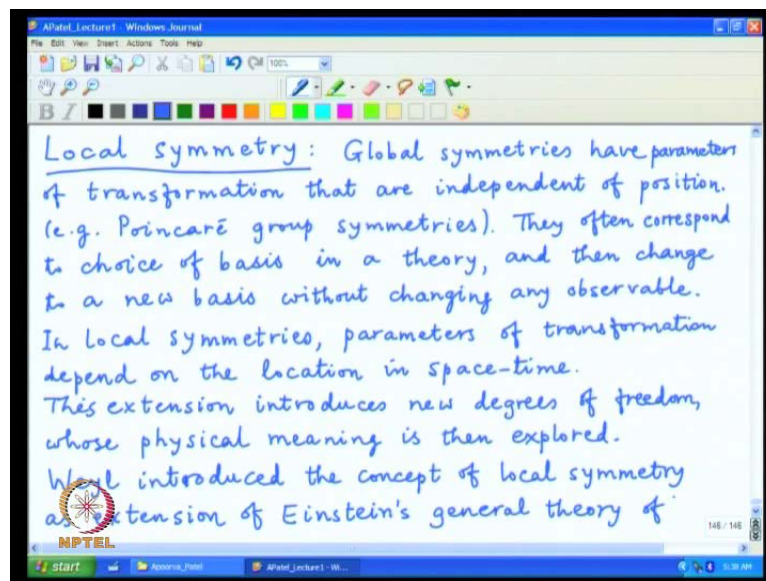 APatel_Lecture1 - Windows Journal
File Edit View Insert Actions Tools Help
100%
B I
Local symmetry: Global symmetries have parameters
of transformation that are independent of position.
(e.g. Poincaré group symmetries). They often correspond
to choice of basis in a theory, and then change
to a new basis without changing any observable.
In local symmetries, parameters of transformation
depend on the location in space-time.
This extension introduces new degrees of freedom,
whose physical meaning is then explored.
Weyl introduced the concept of local symmetry
as extension of Einstein's general theory of
NPTEL
146 / 146
start Apoorva_Patel APatel_Lecture1 - Wi... 5:38 AM